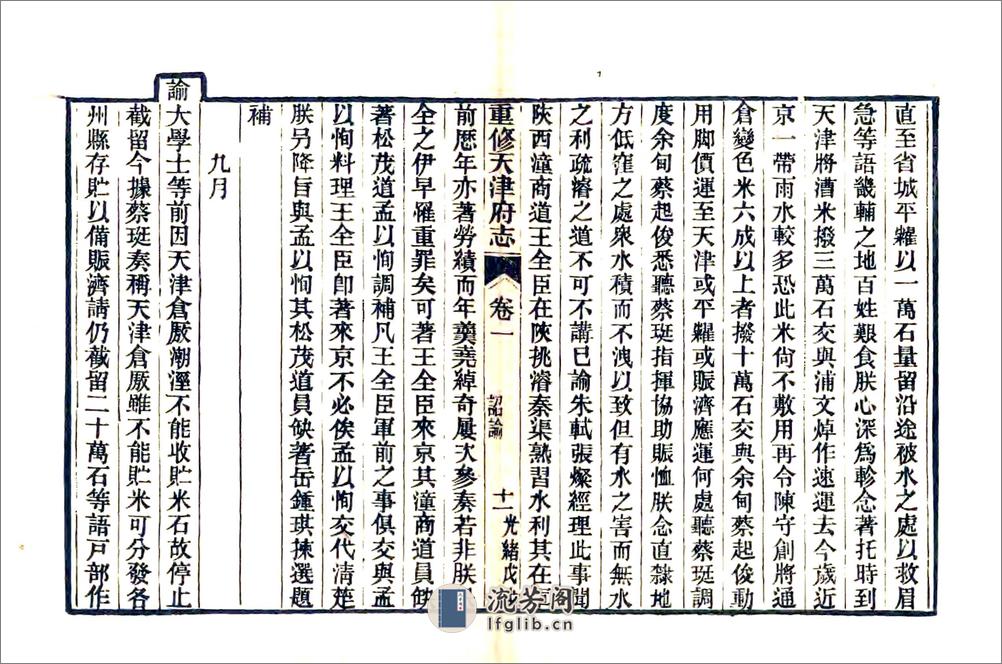 直至省城平糶以一萬石量留沿途被水之處以救眉
急等語畿輔之地百姓艱食朕心深爲軫念著托時到
天津將漕米撥三萬石交與浦文焯作速運去今歲近
京一帶雨水較多恐此米尙不敷用再令陳守創將通
倉變色米六成以上者撥十萬石交與余甸蔡起俊動
用脚價運至天津或平糶或賑濟應運何處聽蔡珽調
度余甸蔡起俊悉聽蔡珽指揮協助賑恤朕念直隸地
方低窪之處衆水積而不洩以致但有水之害而無水
之利疏濬之道不可不講已諭朱軾張燦經理此事聞
陝西潼商道王全臣在陝挑濬秦渠熟習水利其在
重修天津府志 卷一 詔諭 十一 光緒戊
前歷年亦著勞績而年羹堯綽奇屢次參奏若非朕
全之伊早罹重罪矣可著王全臣來京其潼商道員缺
著松茂道孟以恂調補凡王全臣軍前之事俱交與孟
以恂料理王全臣卽著來京不必俟孟以恂交代淸楚
朕另降旨與孟以恂其松茂道員缺著岳鍾琪揀選題
補
九月
諭大學士等前因天津倉厫潮溼不能收貯米石故停止
截留今據蔡珽奏稱天津倉厫雖不能貯米可分發各
州縣存貯以備賑濟請仍截留二十萬石等語戸部作
流芳阁
lfglib.cn